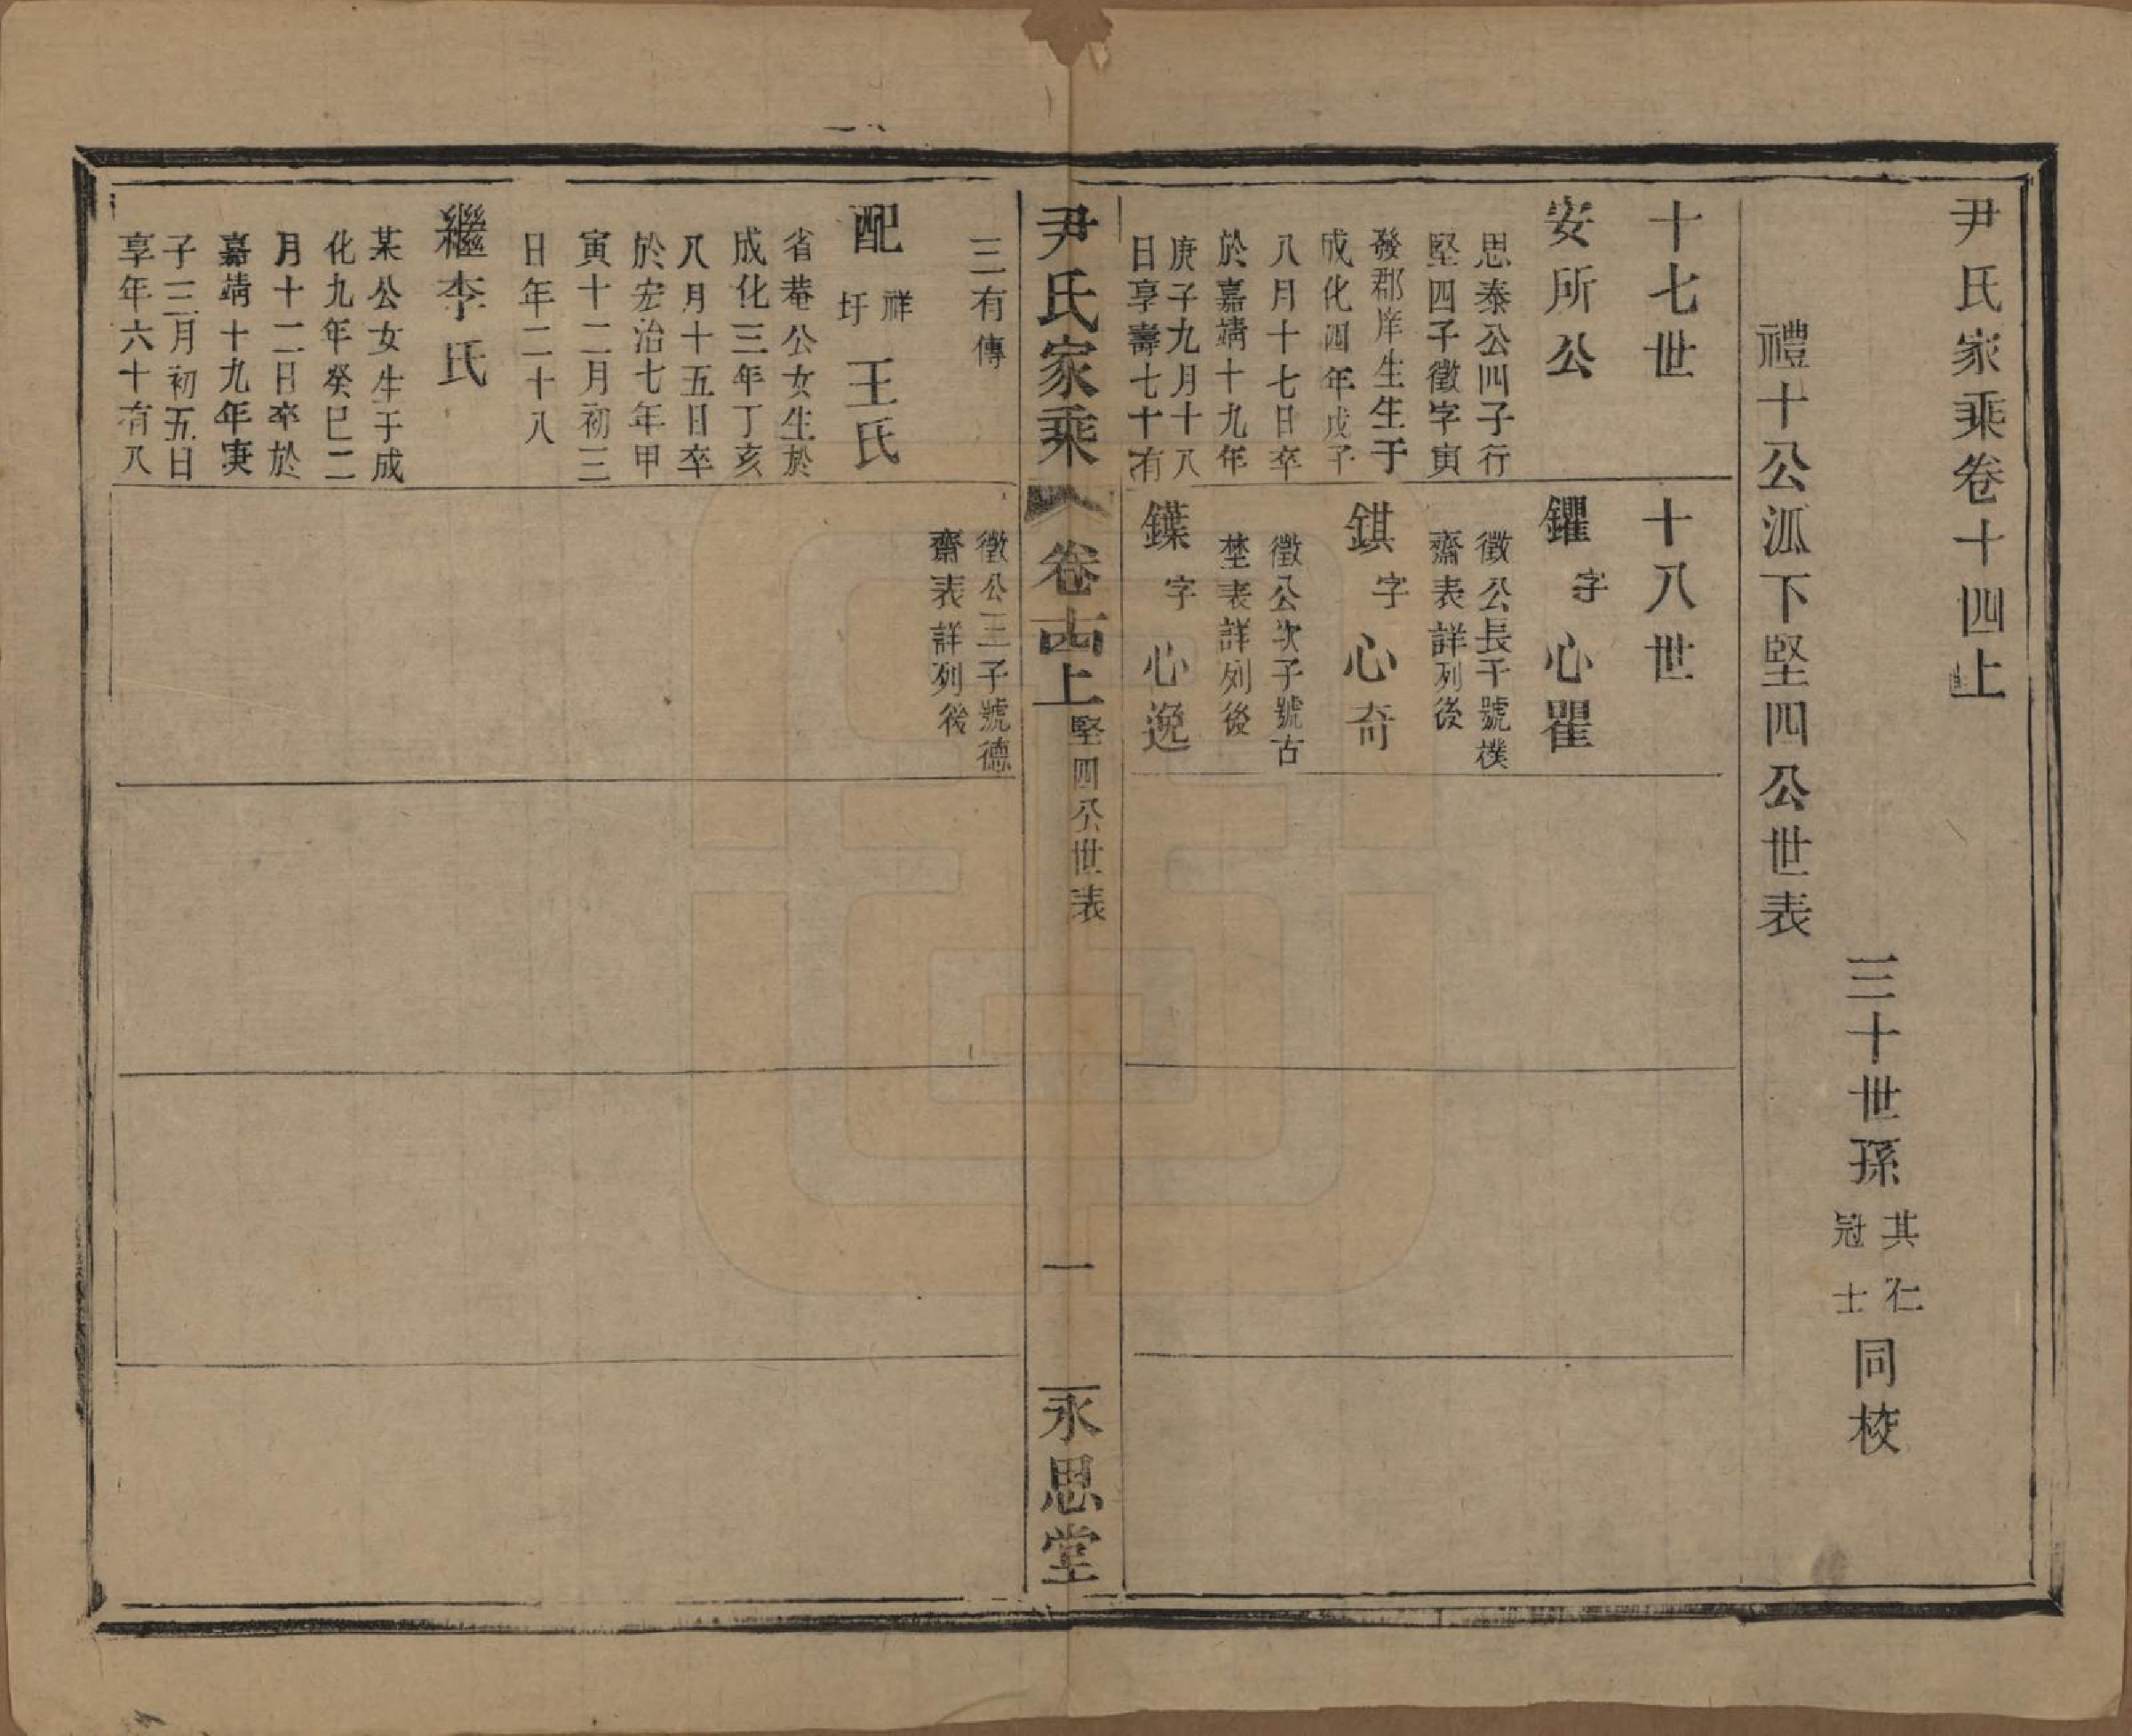 尹氏家乘卷十四上
三十世孫
其仁
冠士
同校
禮十公派下堅四公世表
十七世
安所公
思泰公四子行
堅四子徵字寅
發郡庠生生于
成化四年戊子
八月十七日卒
於嘉靖十九年
庚子九月十八
日享壽七十有
十八世
鑺 字 心瞿
徵公長子號樸
齋表詳列後
錤 字 心奇
徵公次子號古
埜表詳列後
鏶 字 心逸
尹氏家乘
卷十四上
堅四公世表
一
永思堂
三有傳
配
祥
圩
王氏
省菴公女生於
成化三年丁亥
八月十五日卒
於宏治七年甲
寅十二月初三
日年二十八
繼李氏
某公女生于成
化九年癸巳二
月十二日卒於
嘉靖十九年庚
子三月初五日
享年六十有八
徵公三子號德
齋表詳列後